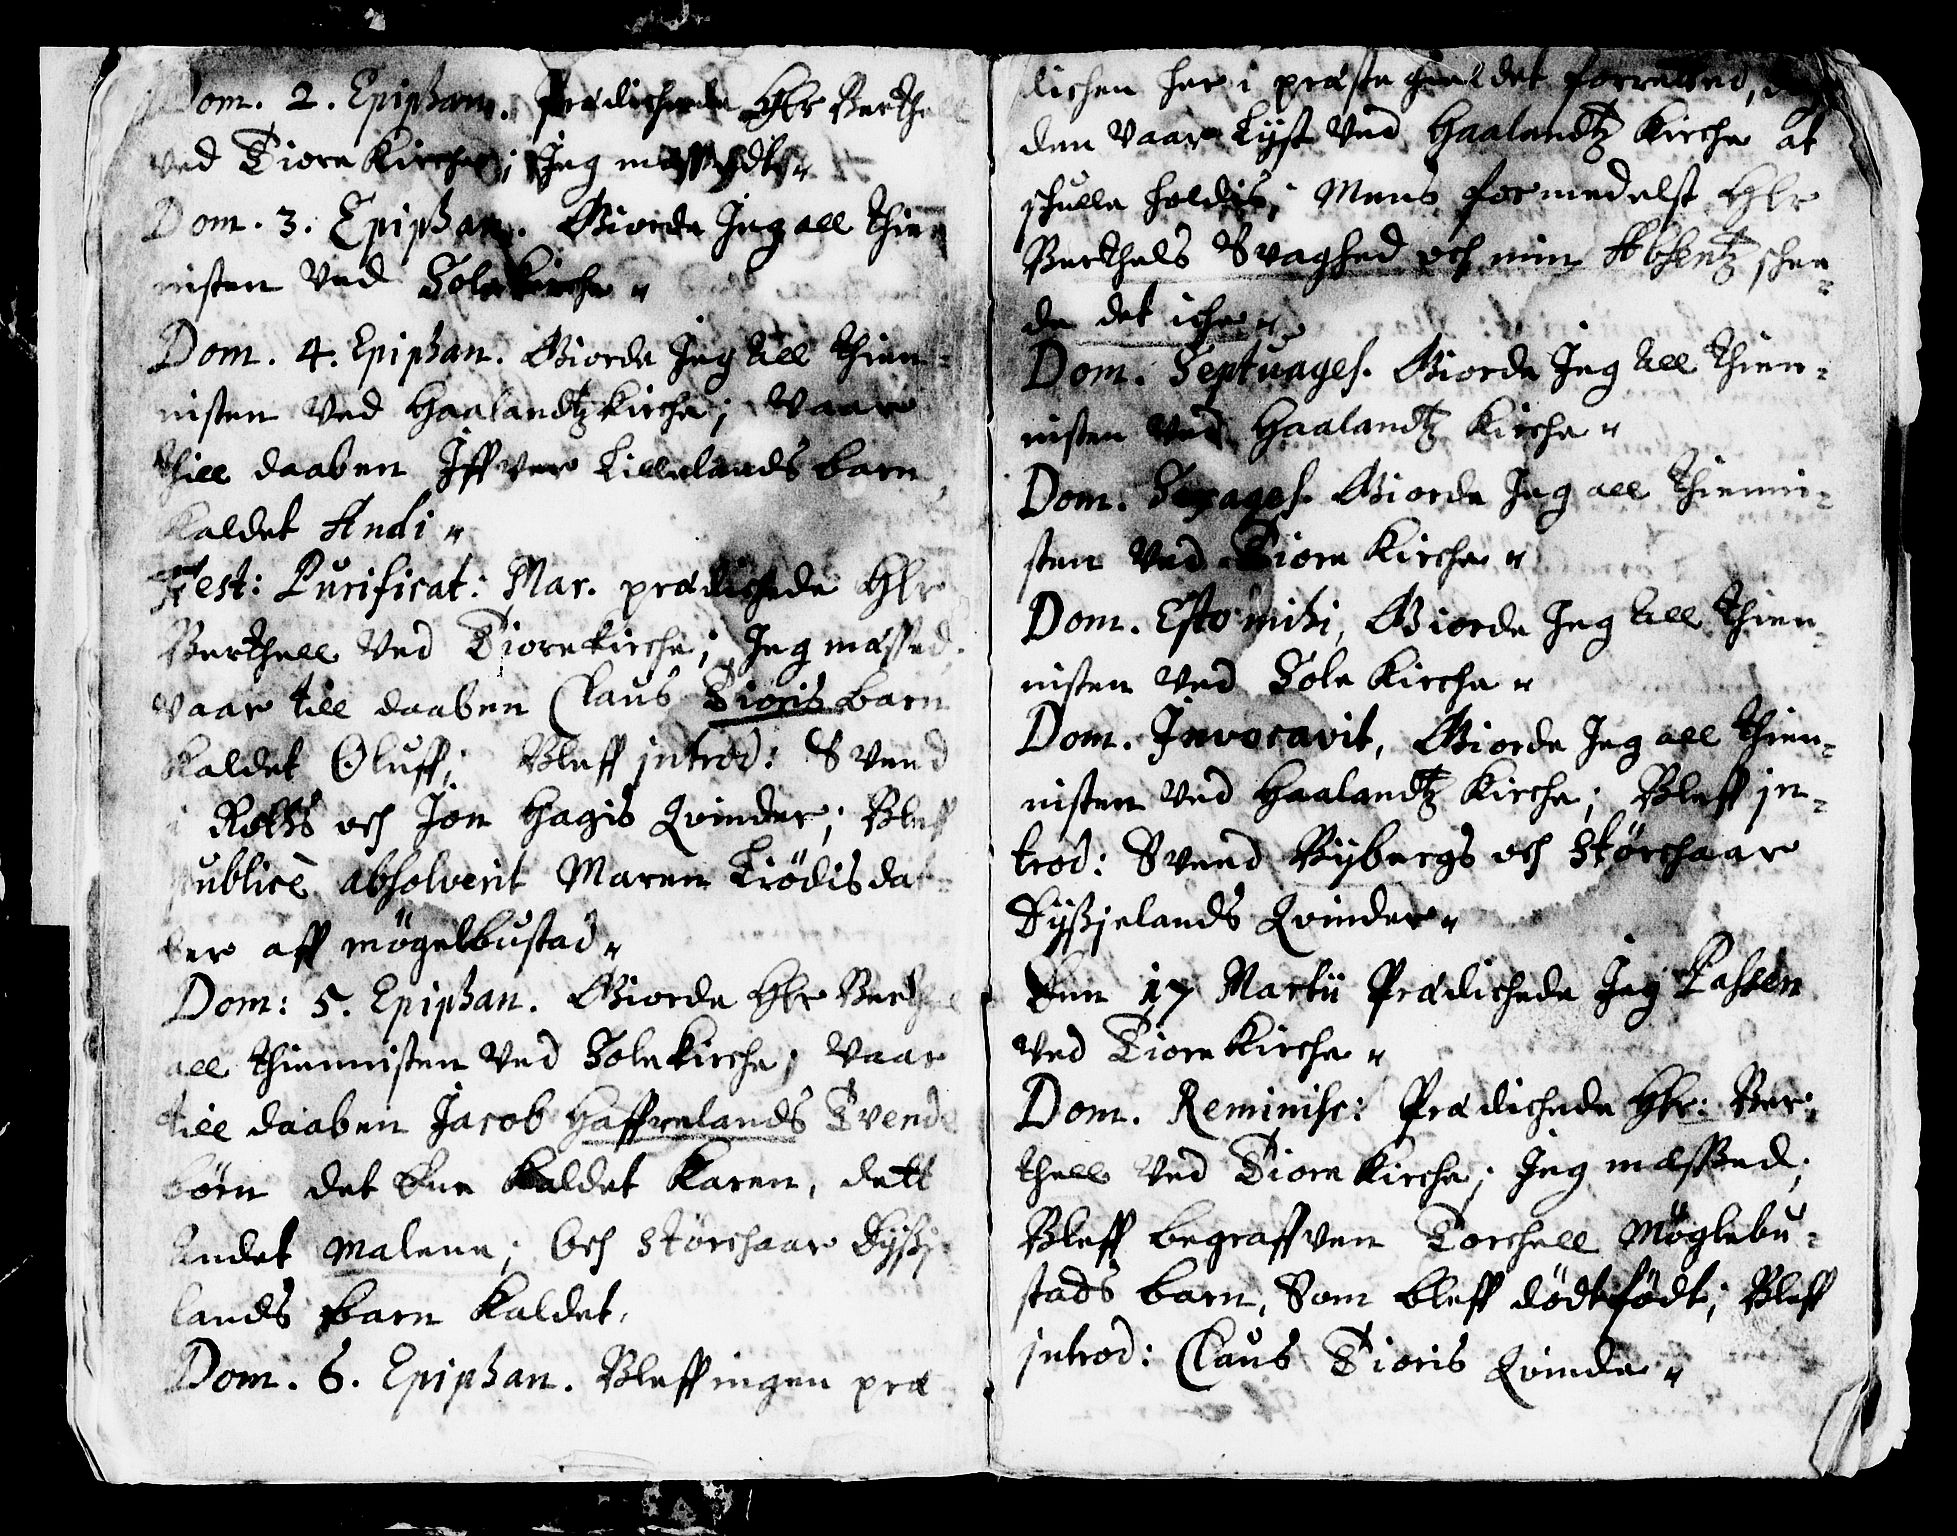 Dom. 2. Epiphan. Prædichede Hlr Berthe
ved Tiore Kirche; Jeg messedt
Dom. 3. Epiphan. Giorde Jeg all thien
nisten Ved Sole kirche
Dom. 4. Epiphan. Giorde Jeg All thien-
nisten Ved Haalandtz kirche; Vaar
thill daaben Iffver Lillelands barn,
kaldet Andi
Fest: Purificat: Mar. prædichede Hlr
Berthell Ved Tiore kirche; Jeg messed.
Vaar till daaben Claus Tioris barn
kaldet Oluff; Bleff introd: Svend
i Rotts och Jon Hagis Qvinder; Bleff
publicè absolverit Maren Tiødisdat-
ter aff møgelbustad
Dom: 5. Epiphan. Giorde Hlr Berthe
all thiennisten Ved Sole kirche; Vaar
till daaben Jacob Haffrelands Tvende
børn det Ene kaldet Karen, dett
Andet Malene; Och Størchaar Dyßj-
lands barn kaldet.
Dom. 6. Epiphan. Bleff ingen præ-
dichen her i præste gieldet forretted,
den Vaar Lyst Ved Haalandtz Kirche at
schulle holdis; Mens formedelst Hlr
Berthels Svaghed och min Absentz schee-
de det iche
Dom. Septuages. Giorde Jeg All thien-
nisten Ved Haalandtz Kirche
Dom. Sexages. Giorde Jeg all thienni-
sten Ved Tiore Kirche
Dom. Esto mihi, Giorde Jeg All thien-
nisten Ved Sole Kirche
Dom. Invocavit, Giorde Jeg all thien-
nisten Ved Haalandtz Kirche; Bleff in-
trod: Svend Rybergs och Størchaar
Dyßjelands Qvinder
Den 17 Martii Prædichede Jeg Passen
Ved Tiore Kirche
Dom. Reminisc: Prædichede Hlr: Ber-
thell Ved Tiore Kirche; Jeg mesßed;
Bleff begraffven Torchell Møglebu-
stads barn, Som bleff dødt født; Bleff
introd: Claus Tioris Qvinde